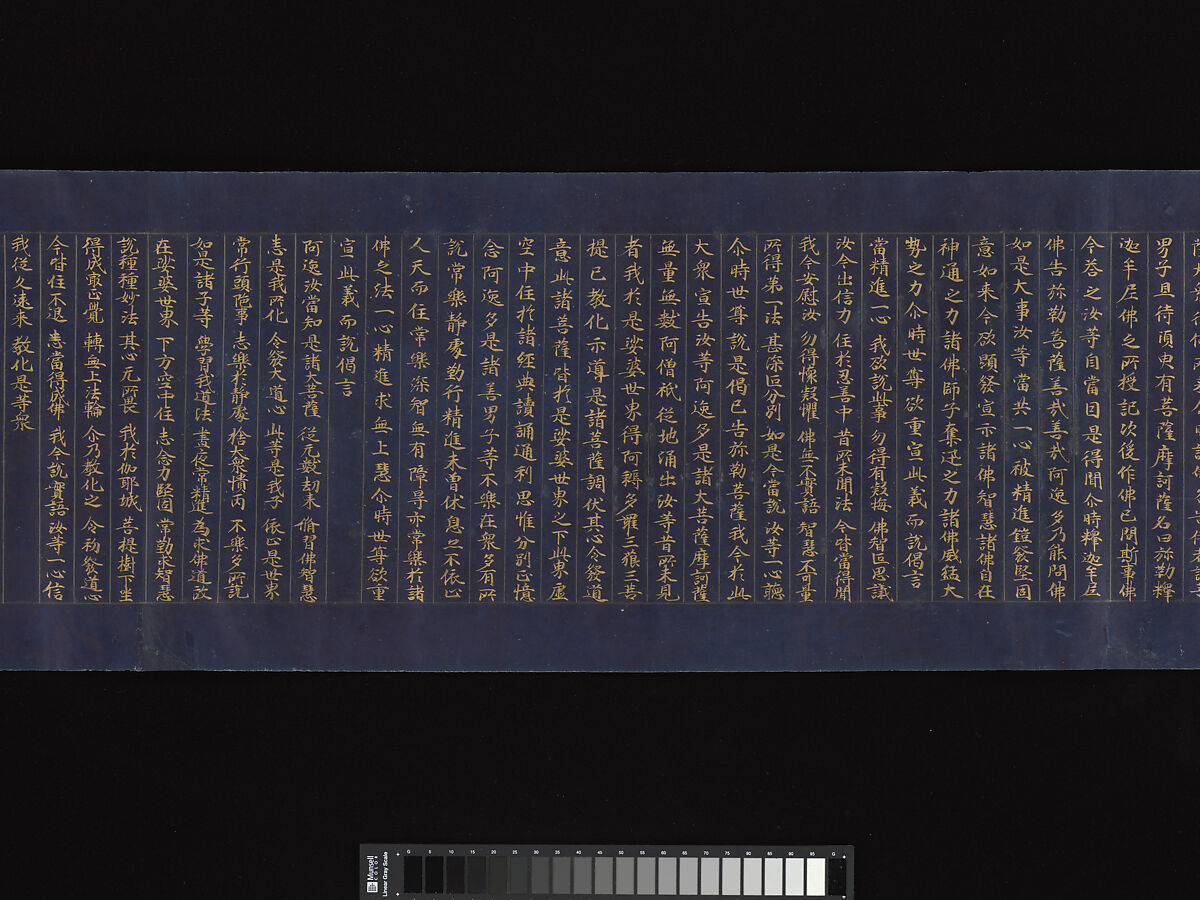 男子且待須臾有菩薩摩訶薩名曰弥勒釋
迦牟尼佛之所授記次後作佛已問斯事佛
今荅之汝等自當因是得聞尒時釋迦牟尼
佛告弥勒菩薩善哉善哉阿逸多乃能問佛
如是大事汝等當共一心被精進鎧發堅固
意如来今欲顯發宣示諸佛智慧諸佛自在
神通之力諸佛師子奮迅之力諸佛威猛大
勢之力尒時世尊欲重宣此義而說偈言
當精進一心 我欲說此事 勿得有疑悔 佛智叵思議
汝今出信力 住於忍善中 昔所未聞法 今皆當得聞
我今安慰汝 勿得懷疑懼 佛無不實語 智慧不可量
所得第一法 甚深叵分別 如是今當說 汝等一心聽
尒時世尊說是偈已告弥勒菩薩我今於此
大衆宣告汝等阿逸多是諸大菩薩摩訶薩
無量無數阿僧祇從地涌出汝等昔所未見
者我於是娑婆世界得阿耨多羅三藐三菩
提已教化示導是諸菩薩調伏其心令發道
意此諸菩薩皆於是娑婆世界之下此界虛
空中住於諸經典讀誦通利思惟分別正憶
念阿逸多是諸善男子等不樂在衆多有所
說常樂靜處勤行精進未曾休息亦不依止
人天而住常樂深智無有障㝵亦常樂於諸
佛之法一心精進求無上慧尒時世尊欲重
宣此義而說偈言
阿逸汝當知 是諸大菩薩 從无數劫来 修習佛智慧
悉是我所化 令發大道心 此等是我子 依止是世界
常行頭陁事 志樂於靜處 捨大衆憒丙 不樂多所說
如是諸子等 學習我道法 晝夜常精進 為求佛道故
在娑婆世界 下方空中住 志念力堅固 常勤求智慧
說種種妙法 其心无所畏 我於伽耶城 菩提樹下坐
得成㝡正覺 轉無上法輪 尒乃教化之 令初發道心
今皆住不退 悉當得成佛 我今說實語 汝等一心信
我從久遠来 教化是等衆
Munsell COLOR Linear Gray Scale
G 5 10 15 20 25 30 35 40 45 50 55 60 65 70 75 80 85 90 95 G